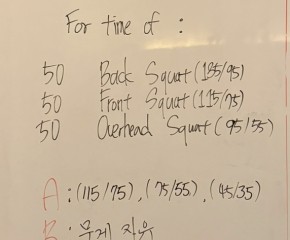 For time of :
50 Back Squat (135/95)
50 Front Squat (115/75)
50 Overhead Squat (95/55)
A : (115/75), (75/55), (45/35)
B : 무게 자유